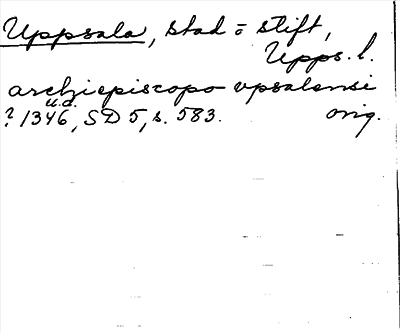 Uppsala, stad o stift,
Upps. l.
archiepiscopo vpsalensi
u.d.
? 1346, SD 5, s. 583. orig.